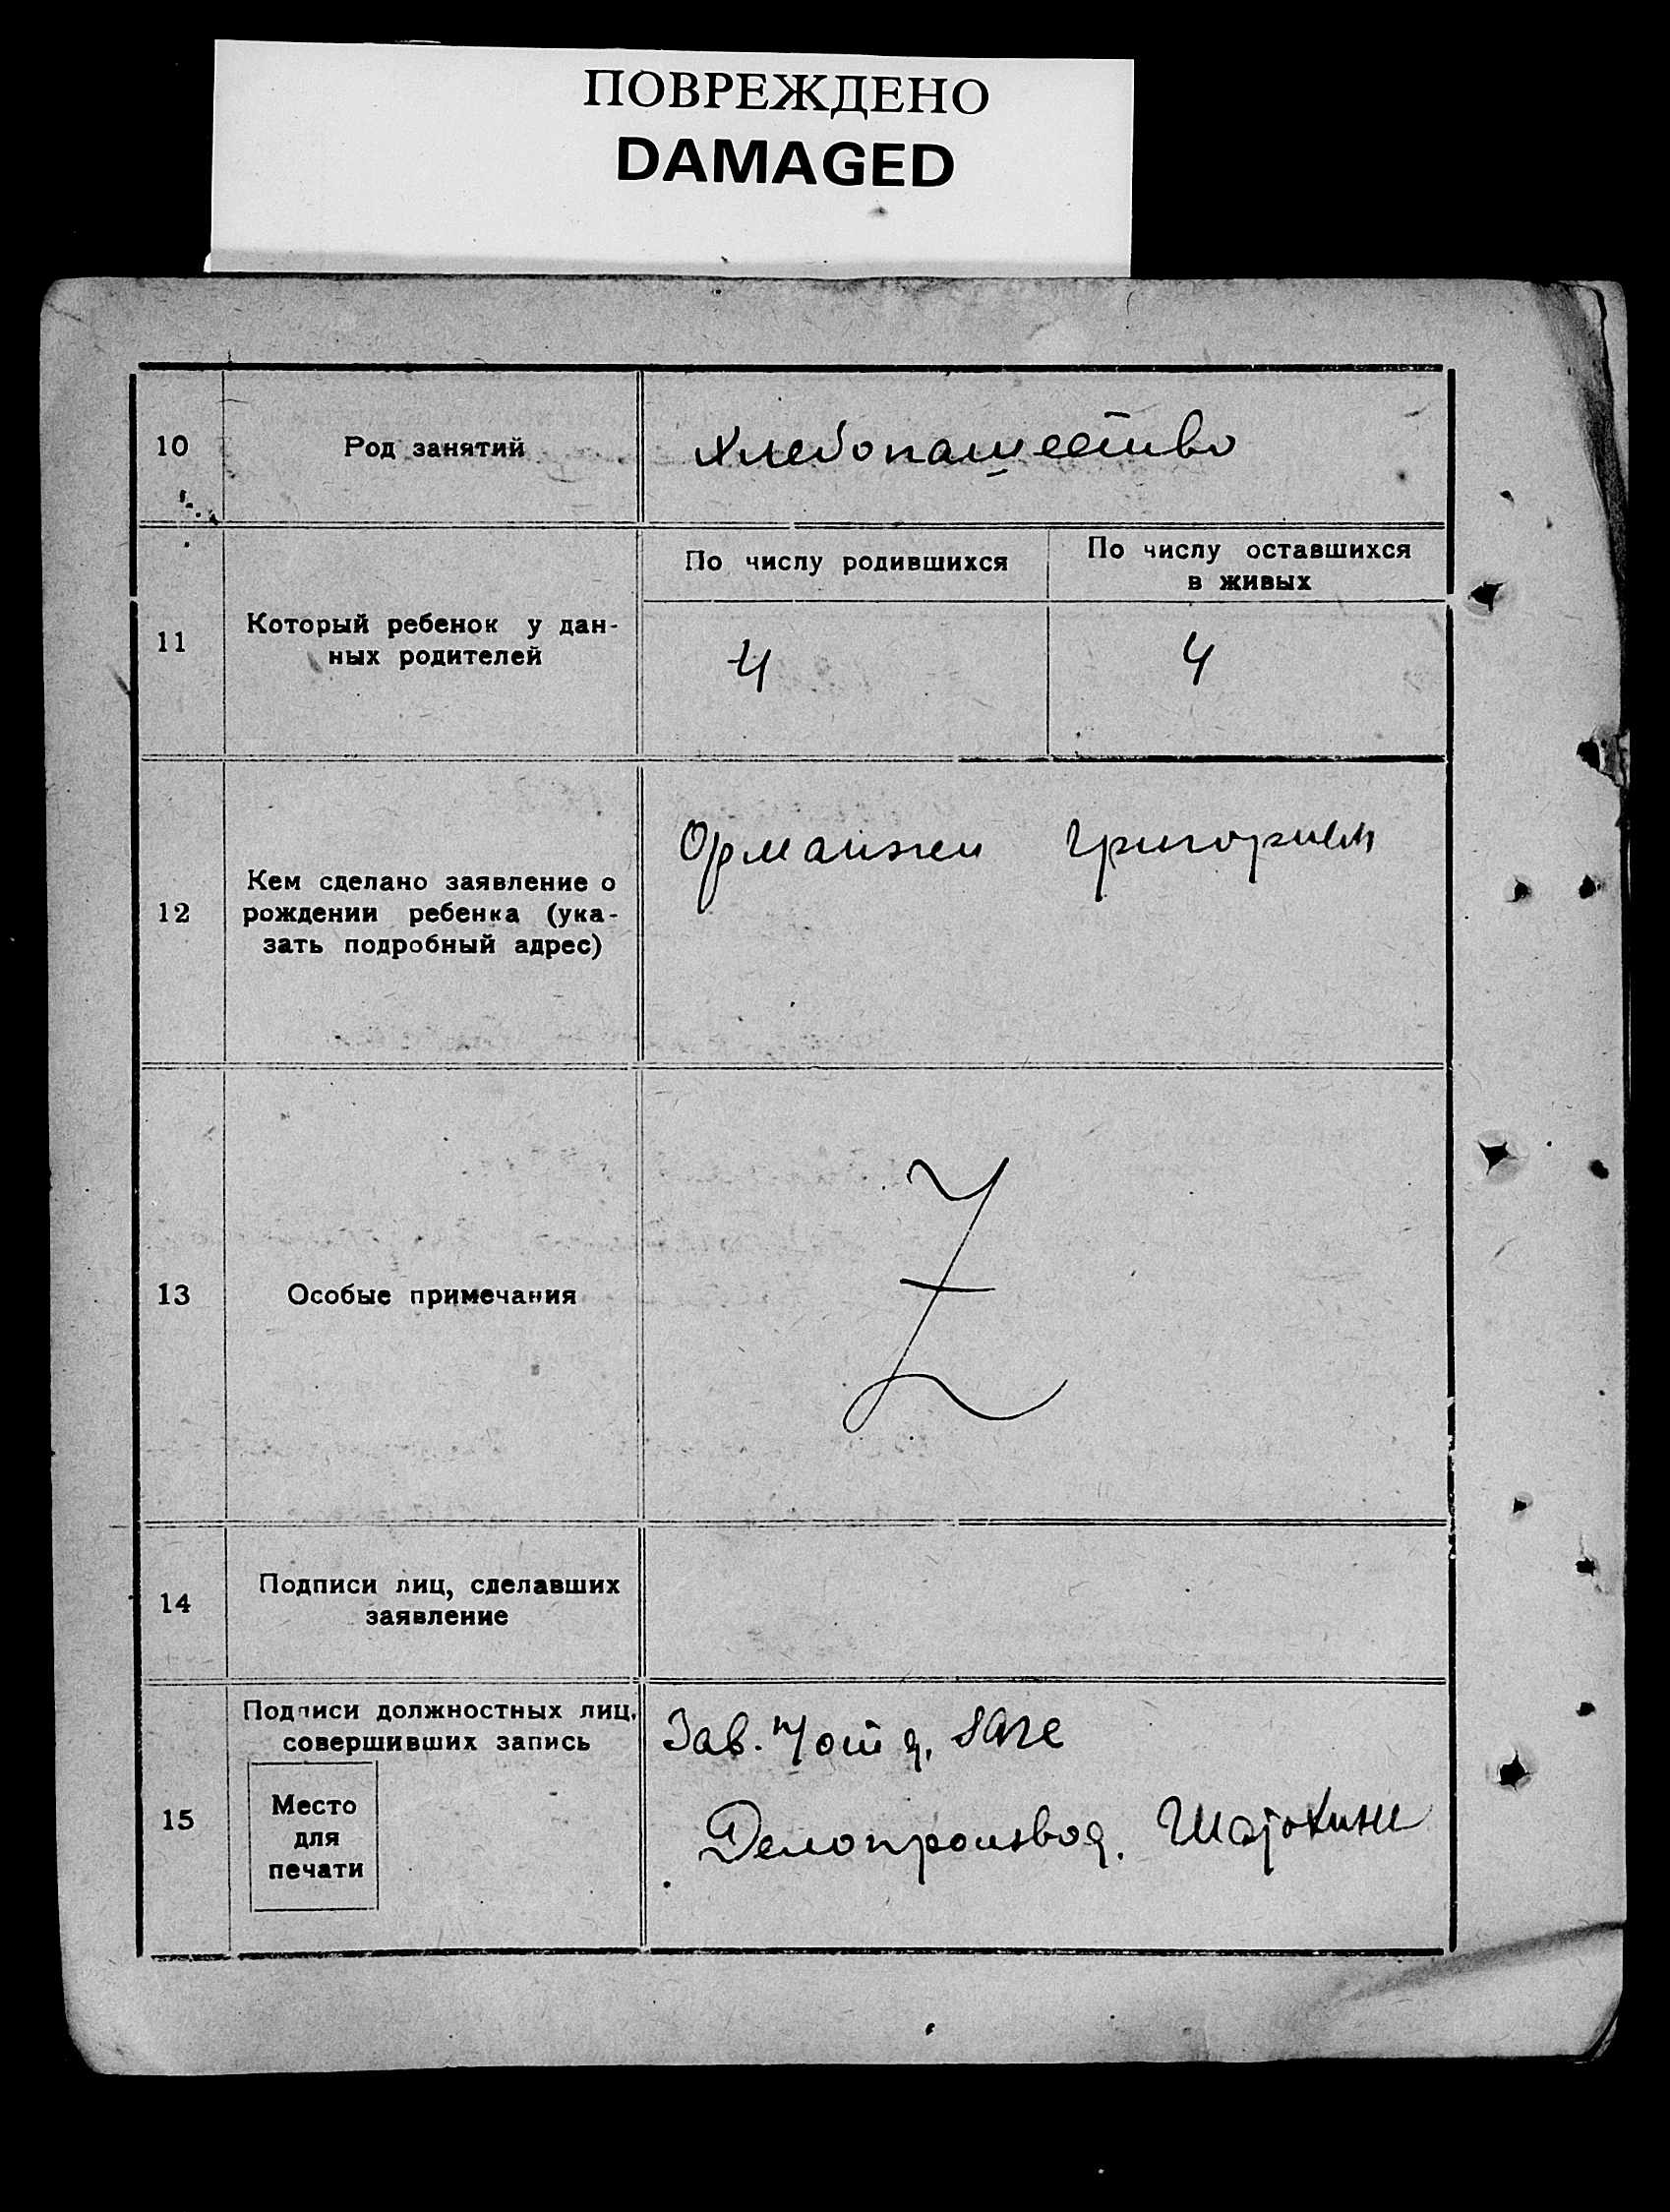 ПОВРЕЖДЕНО
DAMAGED
10
Род занятий
Хлебопашество
11
Который ребенок у дан-
ных родителей
По числу родившихся
По числу оставшихся
в живых
4
4
12
Кем сделано заявление о
рождении ребенка (ука-
зать подробный адрес)
Григорием
13
Особые примечания
Z
14
Подписи лиц, сделавших
заявление
15
Подписи должностных лиц,
совершивших запись
Место
для
печати
Зав.
Делопроизвод.